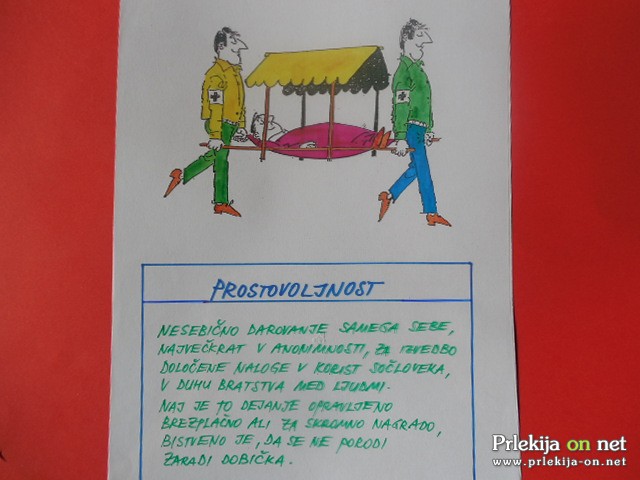 PROSTOVOLJNOST
NESEBIČNO DAROVANJE SAMEGA SEBE,
NAJVEČKRAT V ANONIMNOSTI, ZA IZVEDBO
DOLOČENE NALOGE V KORIST SOČLOVEKA,
V DUHU BRATSTVA MED LJUDMI.
NAJ JE TO DEJANJE OPRAVLJENO
BREZPLAČNO ALI ZA SKROMNO NAGRADO,
BISTVENO JE, DA SE NE PORODI
ZARADI DOBIČKA.
Prlekija on net
www.prlekija-on.net